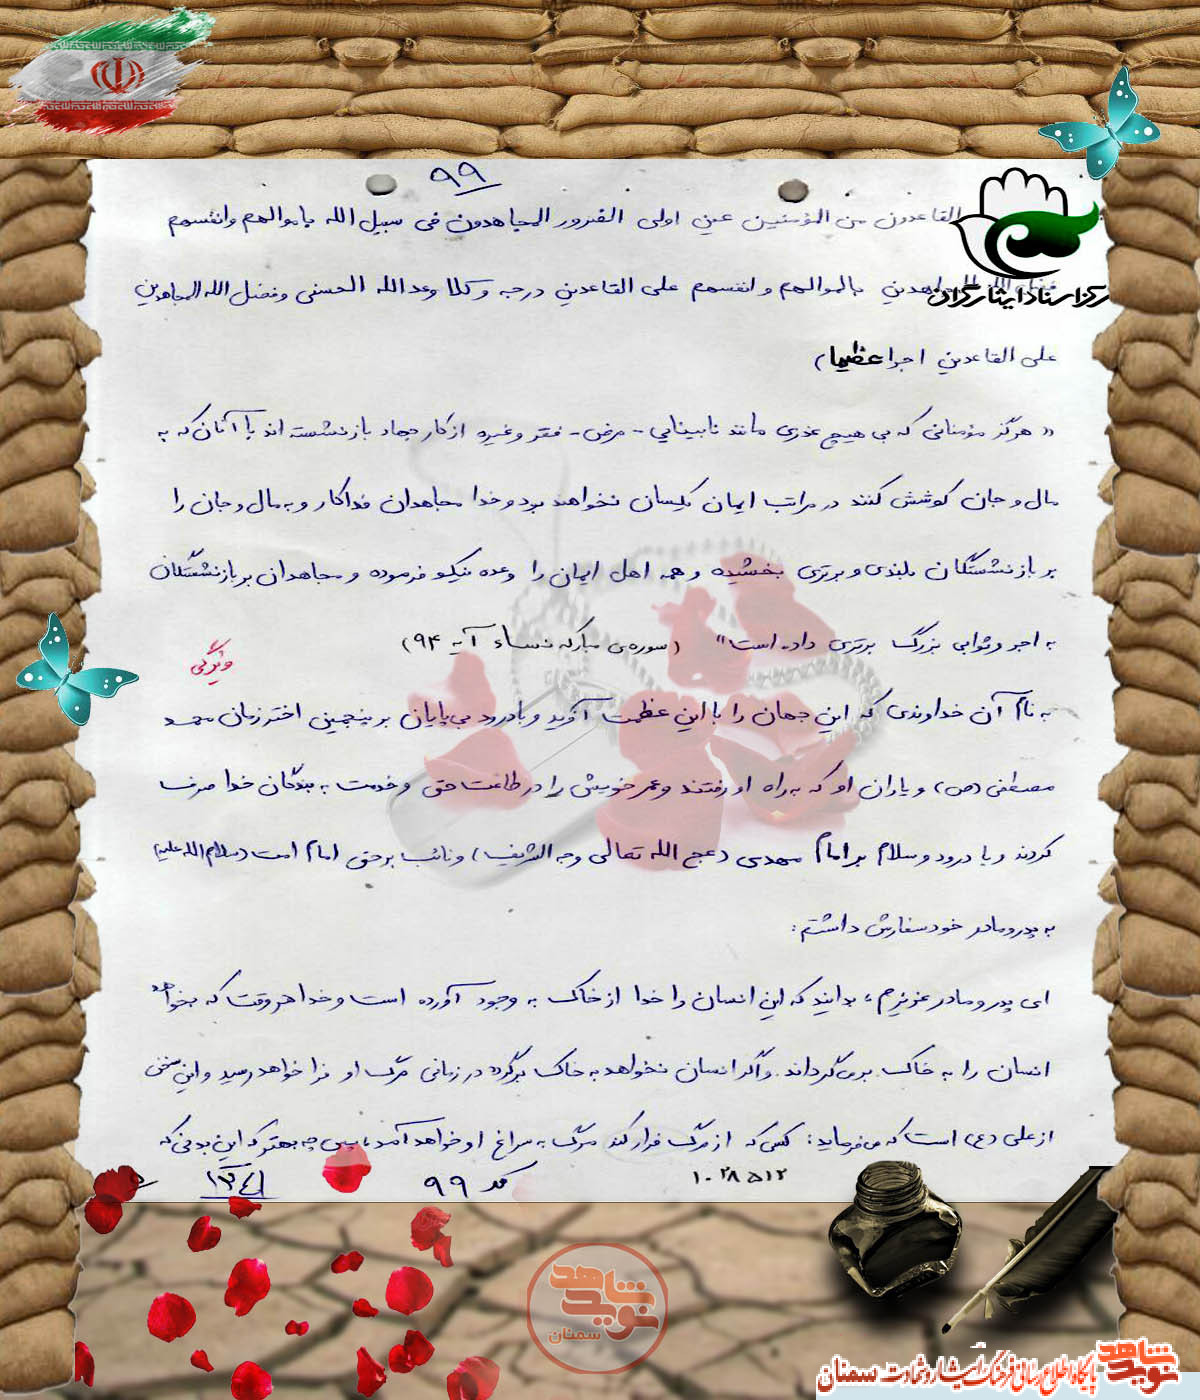 ۹۹
القاعدون من المؤمنین عین اولی الضرور المجاهدون فی سبیل الله باموالهم وانفسهم
المجاهدین بالموالهم و انفسهم علی القاعدین درجه و کلا وعد الله الحسنی و فضل الله المجاهدین
علی القاعدین اجرا عظیما)
« هرگز مؤمنانی که بی هیچ عذری مانند نابینایی - مرض - فقر و غیره از کار جهاد بازنشسته اند با آنان که به
مال و جان کوشش کنند در مراتب ایمان یکسان نخواهند بود و خدا مجاهدان فداکار و به مال و جان را
بر بازنشستگان بلندی و برتری بخشیده و همه اهل ایمان را وعده نیکو فرموده و مجاهدان بر بازنشستگان
به اجر و ثوابی بزرگ برتری داده است» (سوره‌ی مبارکه نساء آیه ۹۴)
ویژگی
به نام آن خداوندی که این جهان را با این عظمت آفرید و با درود بی پایان بر پنجمین اختر زمان محمد
مصطفی (ص) و یاران او که به راه او رفتند و عمر خویش را در طاعت حق و خدمت به بندگان خدا صرف
کردند و با درود و سلام بر امام مهدی (عج الله تعالی وجه الشریف) و نائب بر حق امام امت (سلام الله علیه)
به پدر و مادر خود سفارش داشتم:
ای پدر و مادر عزیزم، بدانید که این انسان را خدا از خاک به وجود آورده است و خدا هر وقت که بخواهد
انسان را به خاک برمی گرداند و اگر انسان نخواهد به خاک برگردد در زمانی مرگ او فرا خواهد رسید و این سخن
از علی (ع) است که می فرماید: کسی که از مرگ فرار کند مرگ به سراغ او خواهد آمد، پس چه بهتر که این بدنی که
۱۰۲۸۵۱۲
کد ۹۹
مرکز اسناد ایثارگران
شاهد
نوید
سمنان
نوید شاهد
پایگاه اطلاع رسانی فرهنگ ایثار و شهادت سمنان